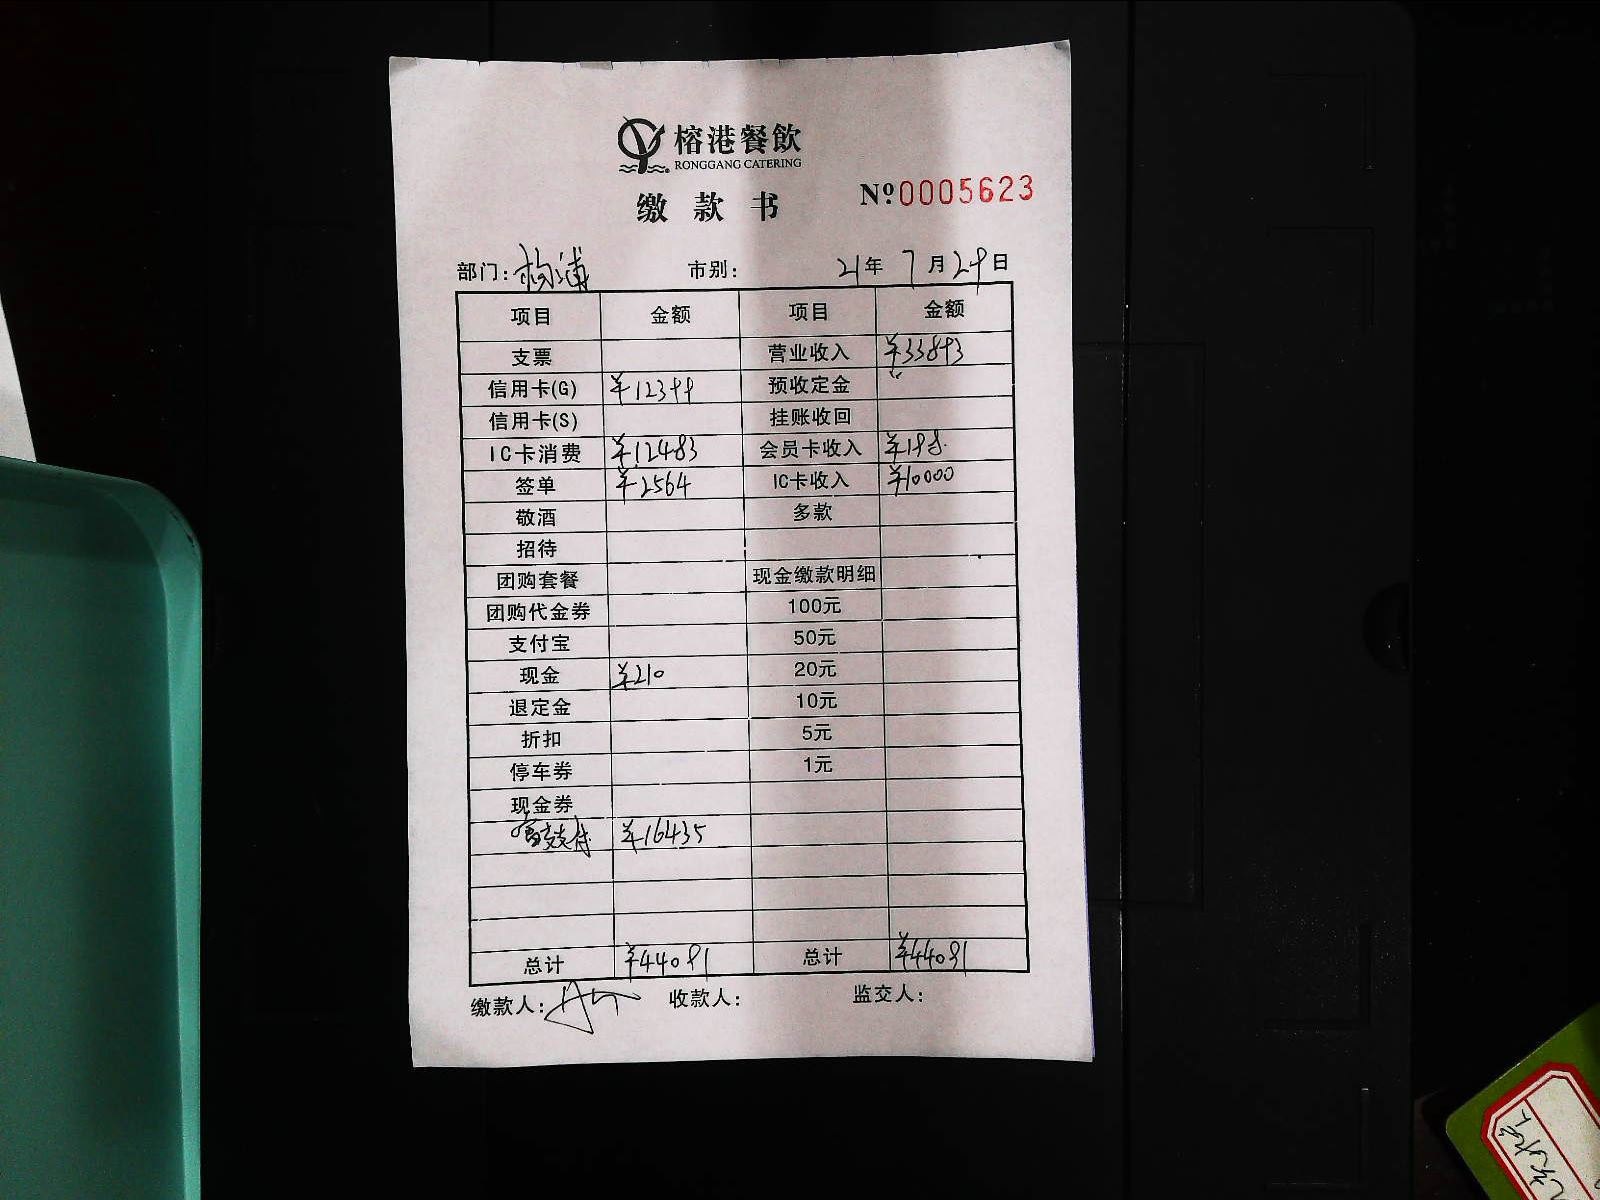 榕港餐飲
RONGGANG CATERING
缴款书 Nº0005623
部门：杨浦 市别： 21年 7月29日
项目 金额 项目 金额
支票 营业收入 ¥33893
信用卡(G) ¥12399 预收定金
信用卡(S) 挂账收回
IC卡消费 ¥12483 会员卡收入 ¥198.
签单 ¥2564 IC卡收入 ¥10000
敬酒 多款
招待
团购套餐 现金缴款明细
团购代金券 100元
支付宝 50元
现金 ¥210 20元
退定金 10元
折扣 5元
停车券 1元
现金券
支付 ¥16435
总计 ¥44091 总计 ¥44091
缴款人： 收款人： 监交人：